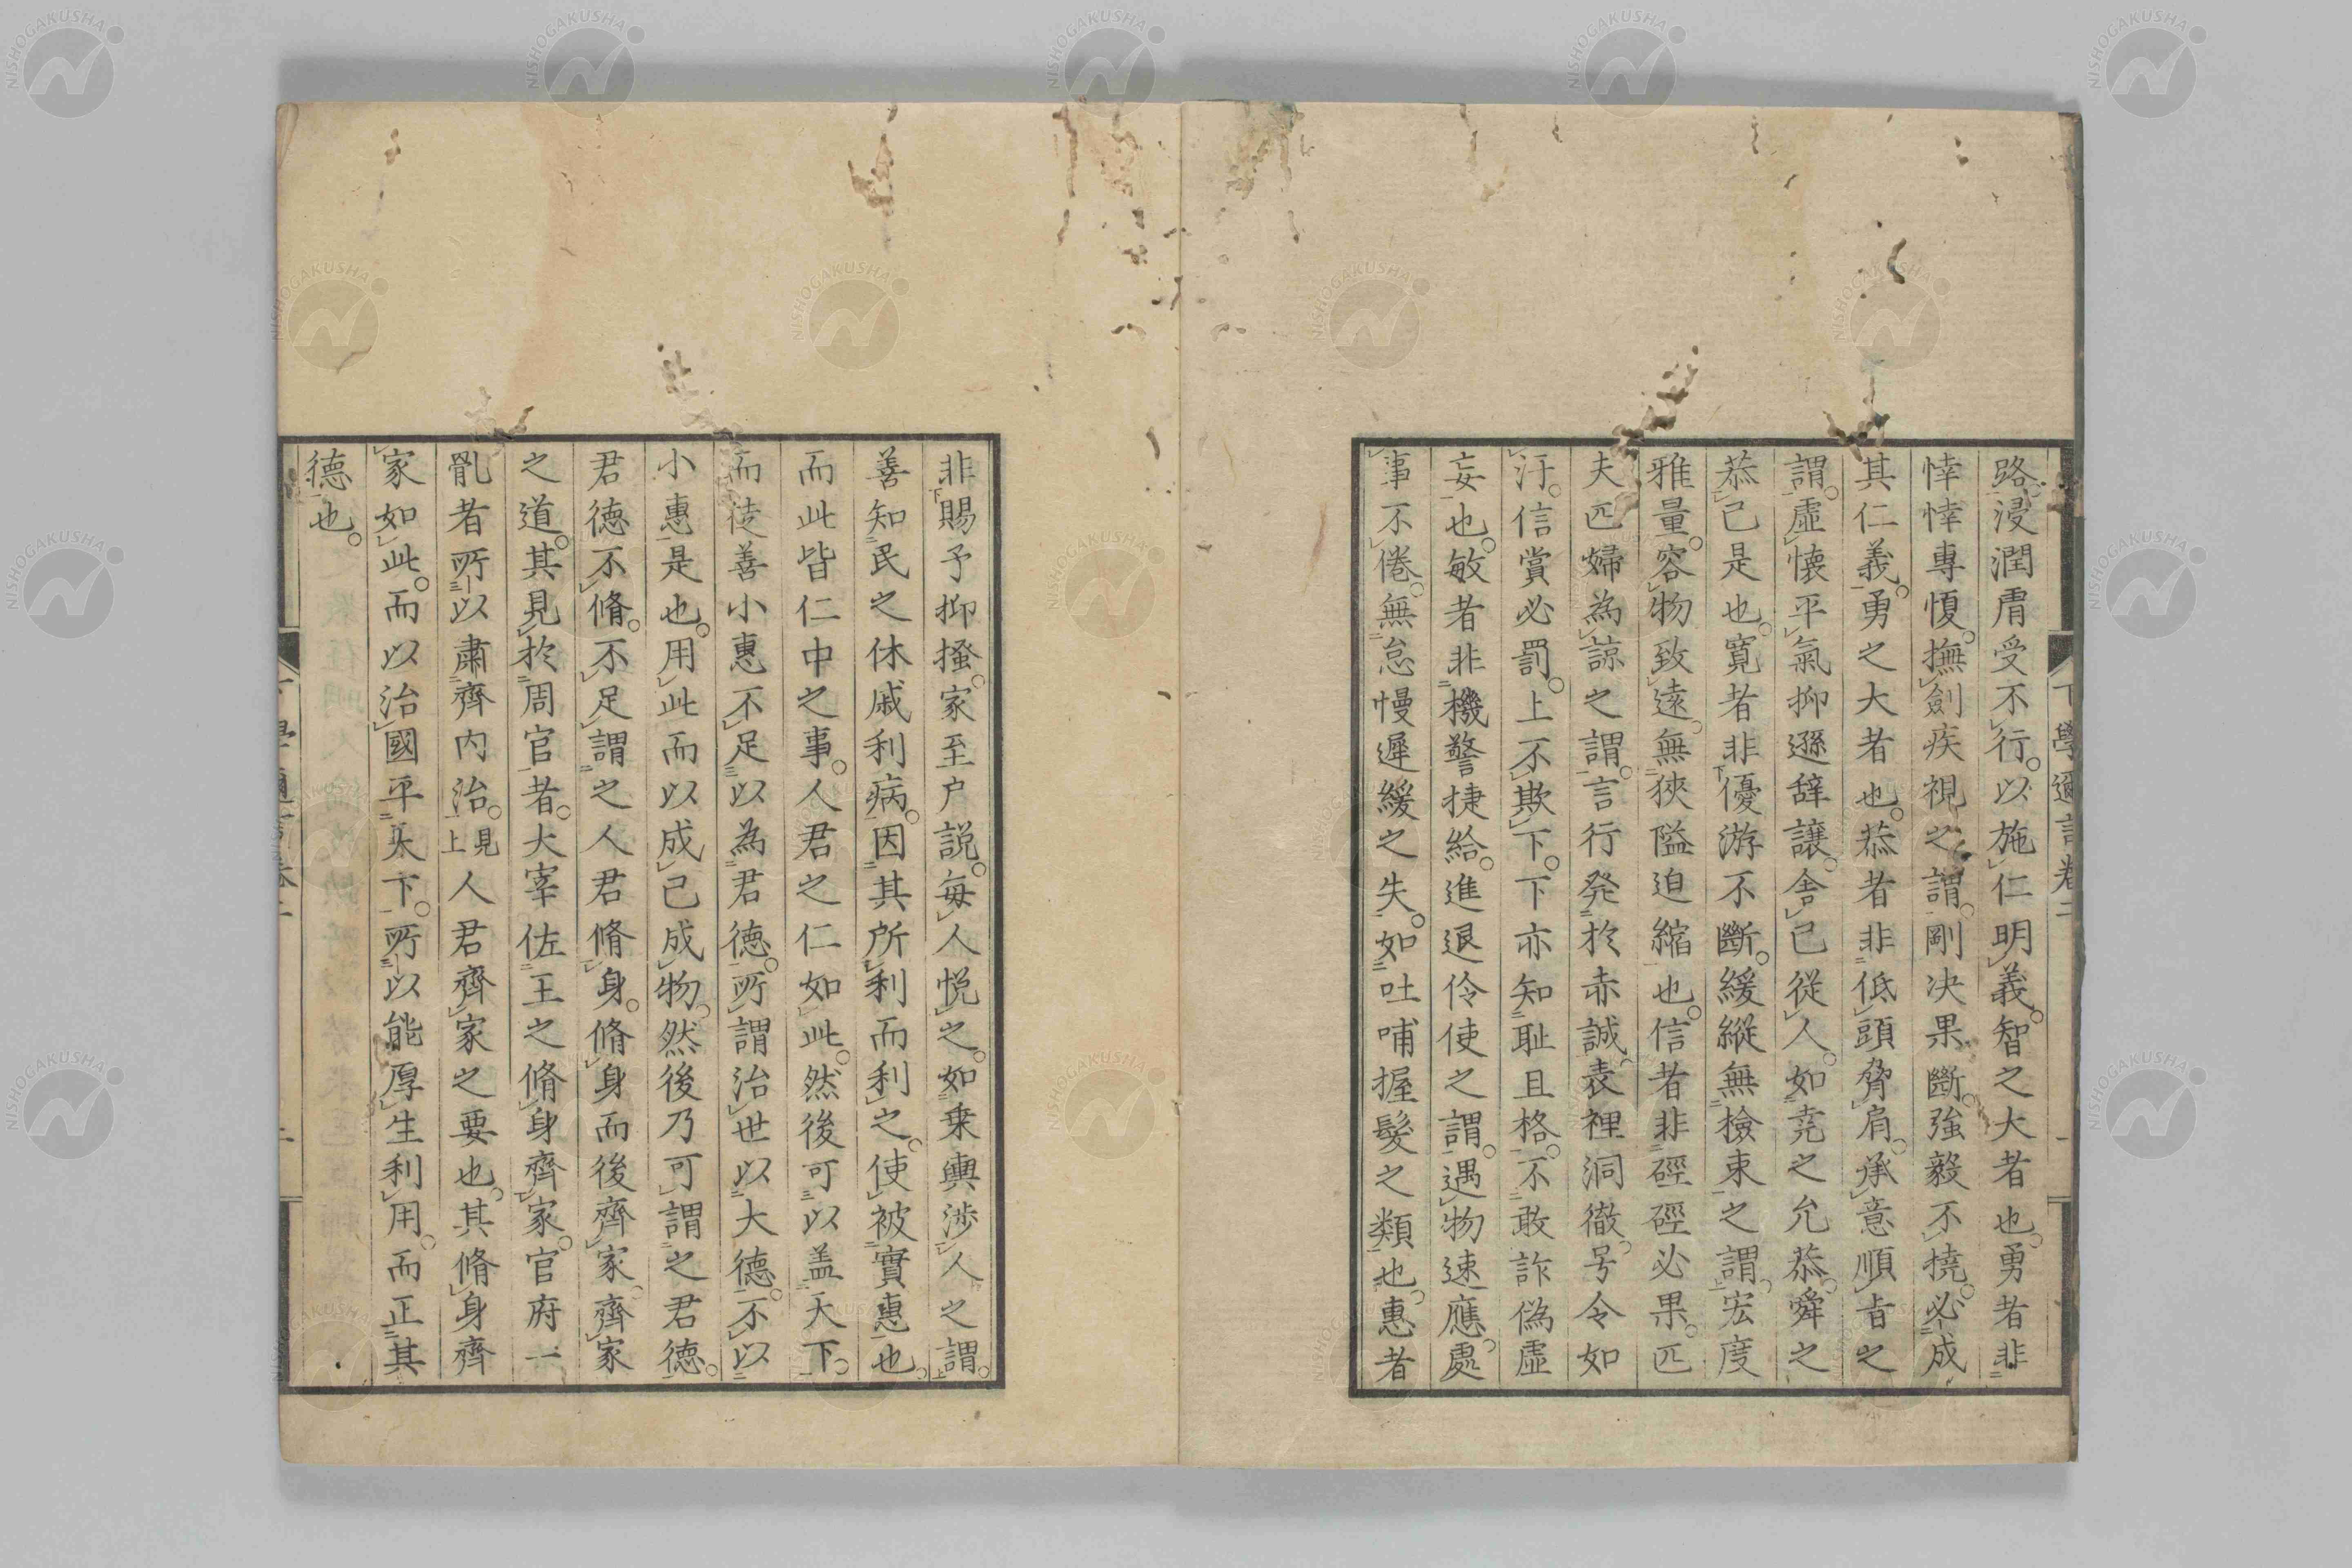 下學邇言卷二
路浸潤膚受不行。以施仁明義。智之大者也。勇者非
悻悻專愎。撫劍疾視之謂。剛决果斷。強毅不撓。必成
其仁義。勇之大者也。恭者非低頭脅肩。承意順旨之
謂。虛懷平氣抑遜辞讓。舍己從人。如堯之允恭。舜之
恭己是也。寬者非優游不斷。緩縱無撿束之謂。宏度
雅量。容物致遠。無狹隘迫縮也。信者非硜硜必果。匹
夫匹婦為諒之謂。言行発於赤誠。表裡洞徹。号令如
汗。信賞必罰。上不欺下。下亦知耻且格。不敢詐偽虛
妄也。敏者非機警捷給。進退伶使之謂。遇物速應。處
事不倦。無怠慢遲緩之失。如吐哺握髮之類也。惠者
非賜予抑搔。家至户説。毎人悦之。如乗輿渉人之謂。
善知民之休戚利病。因其所利而利之。使被實惠也。
而此皆仁中之事。人君之仁如此。然後可以盖天下。
而徒善小惠不足以為君德。所謂治世以大德。不以
小惠是也。用此而以成己成物。然後乃可謂之君德。
君德不脩。不足謂之人君脩身。脩身而後齊家。齊家
之道。其見於周官者。大宰佐王之脩身齊家。官府一
體者所以肅齊内治。見上人君齊家之要也。其脩身齊
家如此。而以治國平天下。所以能厚生利用。而正其
德也。